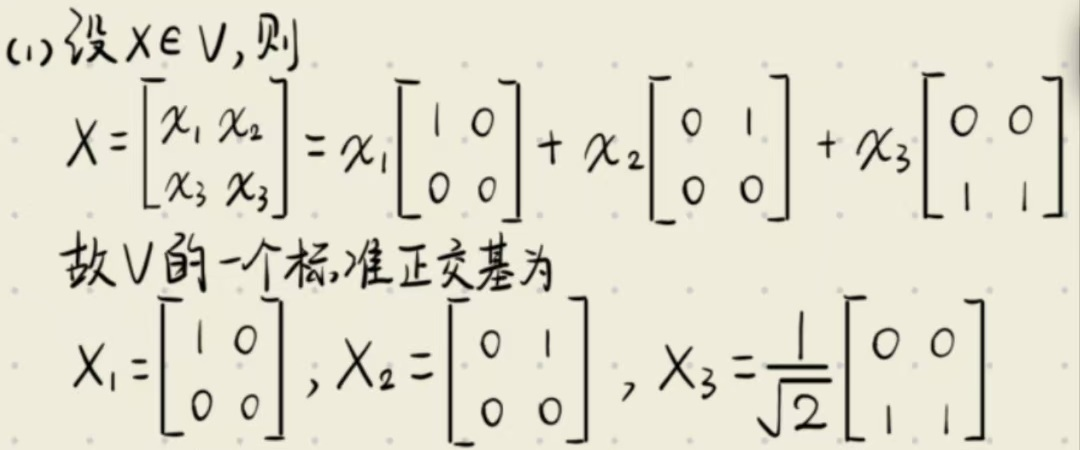 (1) 设 X ∈ V, 则
X = [x₁ x₂; x₃ x₃] = x₁ [1 0; 0 0] + x₂ [0 1; 0 0] + x₃ [0 0; 1 1]
故 V 的一个标准正交基为
X₁ = [1 0; 0 0], X₂ = [0 1; 0 0], X₃ = 1/√2 [0 0; 1 1]